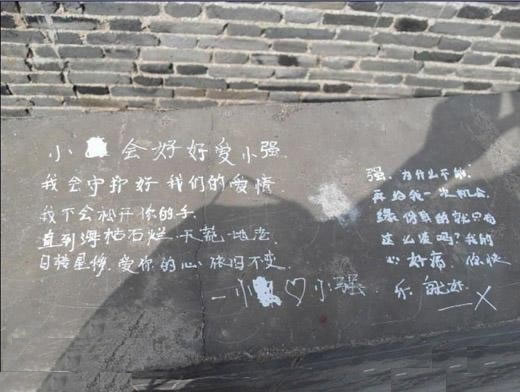 小 会好好爱小强.
我会守护好我们的爱情.
我不会松开你的手.
直到海枯石烂.天荒地老.
日转星移.爱你的心依旧不变.
一小 ♡小强.
强.为什么不能
再给我一次机会.
缘份真的就只有
这么浅吗?我的
心好痛,你快
乐
—X